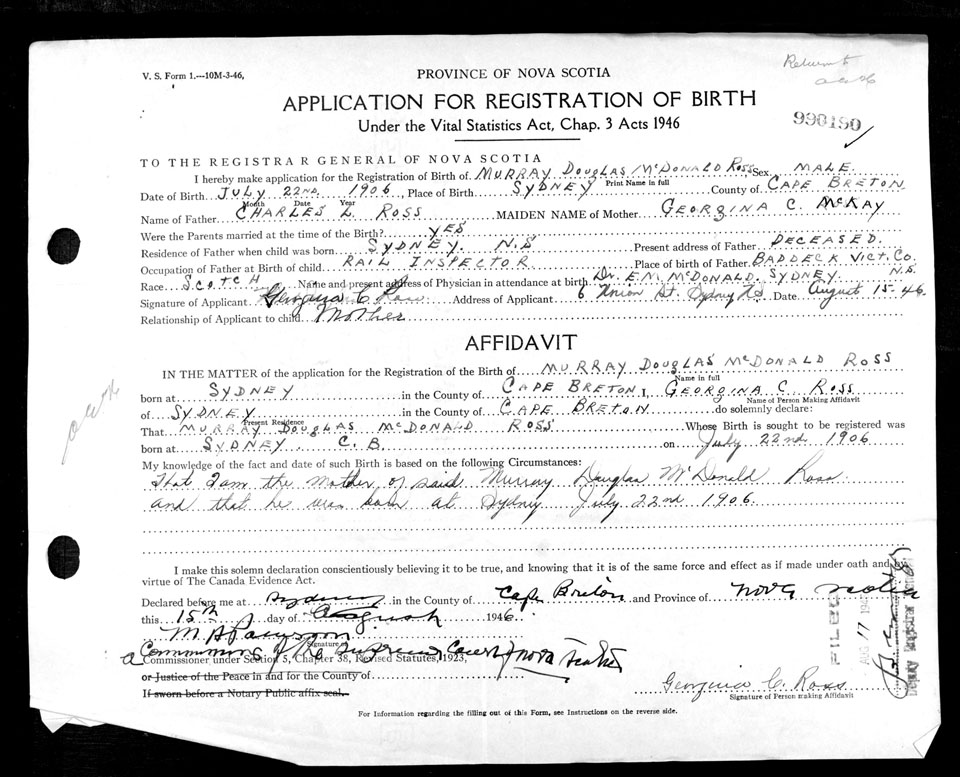 Return to
V. S. Form 1.—10M-3-46,
PROVINCE OF NOVA SCOTIA
APPLICATION FOR REGISTRATION OF BIRTH
990190
Under the Vital Statistics Act, Chap. 3 Acts 1946
TO THE REGISTRAR GENERAL OF NOVA SCOTIA
I hereby make application for the Registration of Birth of MURRAY DOUGLAS McDONALD ROSS Sex MALE
Print Name in full
Date of Birth JULY 22ND. 1906, Place of Birth SYDNEY County of CAPE BRETON
Month Date Year
Name of Father CHARLES L. ROSS MAIDEN NAME of Mother GEORGINA C. McKAY
Were the Parents married at the time of the Birth? YES
Residence of Father when child was born SYDNEY. N.S Present address of Father DECEASED.
Occupation of Father at Birth of child RAIL INSPECTOR Place of birth of Father BADDECK VICT. CO. N.S.
Race SCOTCH Name and present address of Physician in attendance at birth Dr. E.M. McDONALD. SYDNEY.
Signature of Applicant Georgina C. Ross Address of Applicant 6 Union St. Sydney N.S. Date August 15-46
Relationship of Applicant to child Mother
AFFIDAVIT
IN THE MATTER of the application for the Registration of the Birth of MURRAY DOUGLAS McDONALD ROSS
Name in full
born at SYDNEY in the County of CAPE BRETON I, GEORGINA C. ROSS
Name of Person Making Affidavit
of SYDNEY in the County of CAPE BRETON do solemnly declare:
Present Residence
That MURRAY DOUGLAS McDONALD ROSS Whose Birth is sought to be registered was
born at SYDNEY C. B. on July 22nd 1906
My knowledge of the fact and date of such Birth is based on the following Circumstances:
That I am the Mother of said Murray Douglas McDonald Ross
and that he was born at Sydney July 22nd 1906.
I make this solemn declaration conscientiously believing it to be true, and knowing that it is of the same force and effect as if made under oath and by
virtue of The Canada Evidence Act.
Declared before me at Sydney in the County of Cape Breton and Province of Nova Scotia
this 15th day of August 1946
Signature of
a Commissioner of the Supreme Court of Nova Scotia
Commissioner under Section 5, Chapter 38, Revised Statutes, 1923,
or Justice of the Peace in and for the County of
If sworn before a Notary Public affix seal.
Georgina C. Ross
Signature of Person Making Affidavit
FILED
AUG 17 194
Deputy Registrar General
For Information regarding the filling out of this Form, see Instructions on the reverse side.